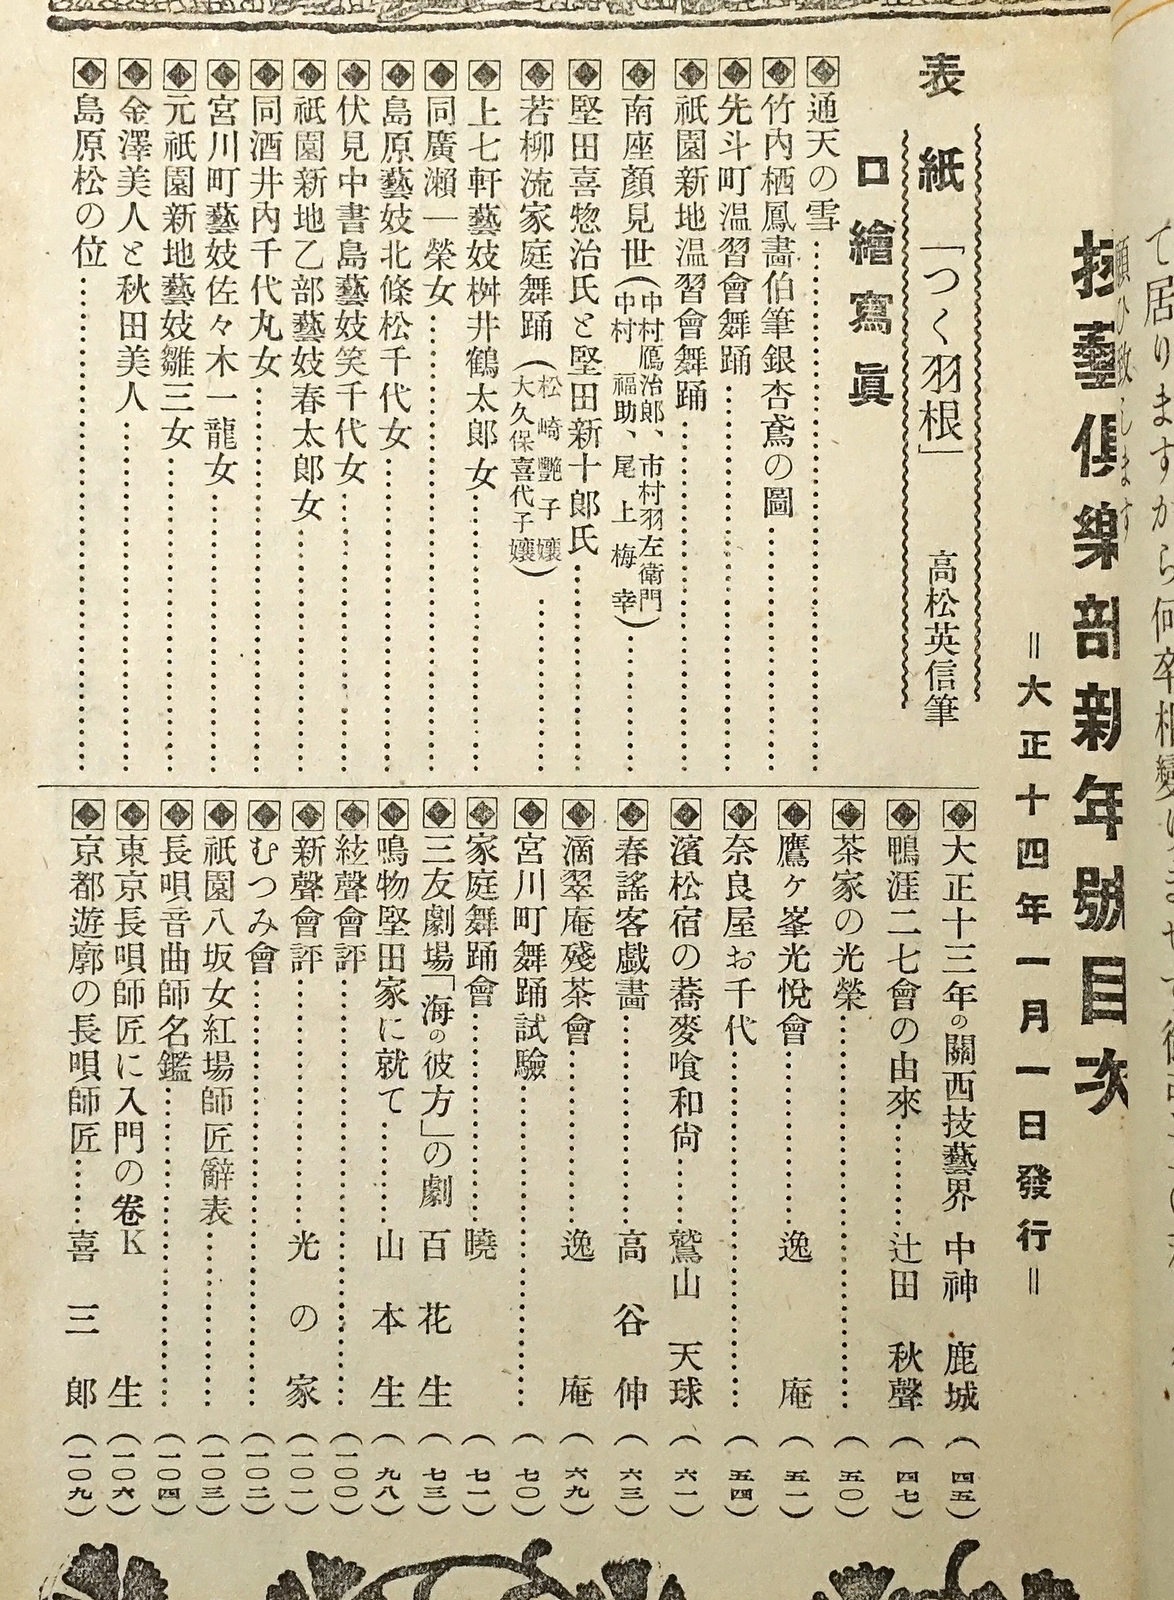 て居りますから何卒相變
願ひ致します
技藝俱樂部新年號目次
=大正十四年一月一日發行=
表紙「つく羽根」 高松英信筆
口繪寫眞
通天の雪
竹內栖鳳畵伯筆銀杏鳶の圖
先斗町溫習會舞踊
祇園新地溫習會舞踊
南座顏見世(中村鴈治郎、市村羽左衞門 中村福助、尾上梅幸)
堅田喜惣治氏と堅田新十郎氏
若柳流家庭舞踊(松崎艷子孃 大久保喜代子孃)
上七軒藝妓桝井鶴太郎女
同廣瀨一榮女
島原藝妓北條松千代女
伏見中書島藝妓笑千代女
祇園新地乙部藝妓春太郎女
同酒井內千代丸女
宮川町藝妓佐々木一龍女
元祇園新地藝妓雛三女
金澤美人と秋田美人
島原松の位
大正十三年の關西技藝界 中神鹿城(四五)
鴨涯二七會の由來 辻田秋聲(四七)
茶家の光榮(五〇)
鷹ヶ峯光悅會 逸庵(五一)
奈良屋お千代(五四)
濱松宿の蕎麥喰和尙 鷲山天球(六一)
春謠客戲畵 高谷伸(六三)
滴翠庵殘茶會 逸庵(六九)
宮川町舞踊試驗(七〇)
家庭舞踊會 曉(七一)
三友劇場「海の彼方」の劇 百花生(七三)
鳴物堅田家に就て 山本生(九八)
絃聲會評(一〇〇)
新聲會評 光の家(一〇一)
むつみ會(一〇二)
祇園八坂女紅場師匠辭表(一〇三)
長唄音曲師名鑑(一〇四)
東京長唄師匠に入門の卷 K生(一〇六)
京都遊廓の長唄師匠 喜三郎(一〇九)